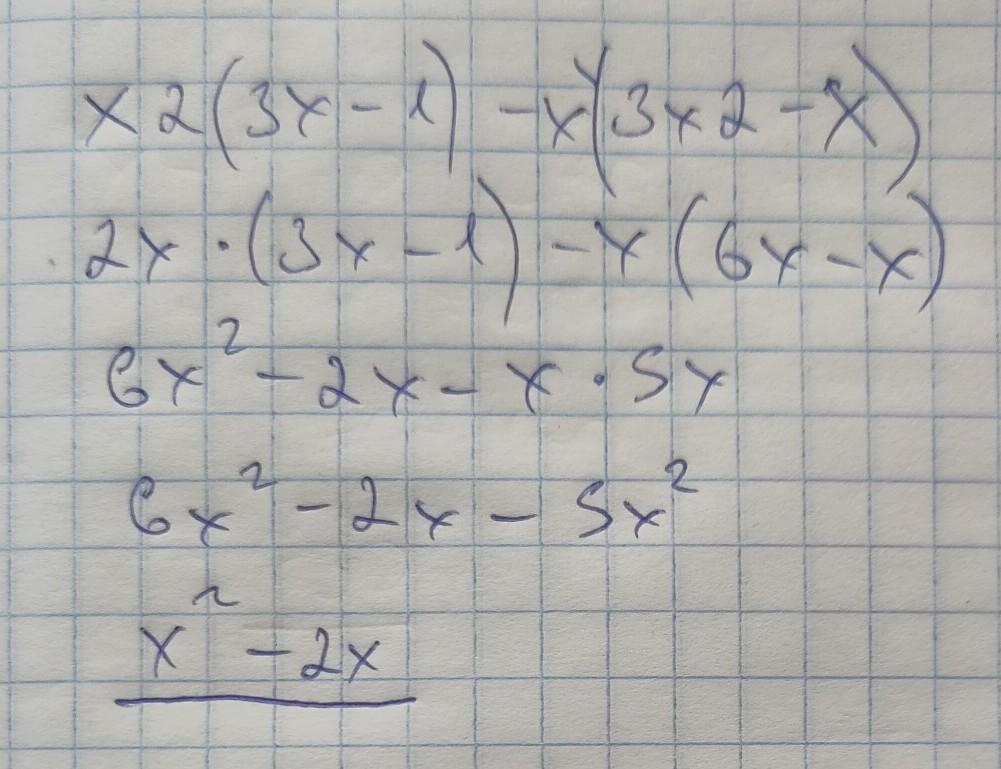 x2(3x-1)-x(3x2-x)
2x·(3x-1)-x(6x-x)
6x²-2x-x·5x
6x²-2x-5x²
x²-2x